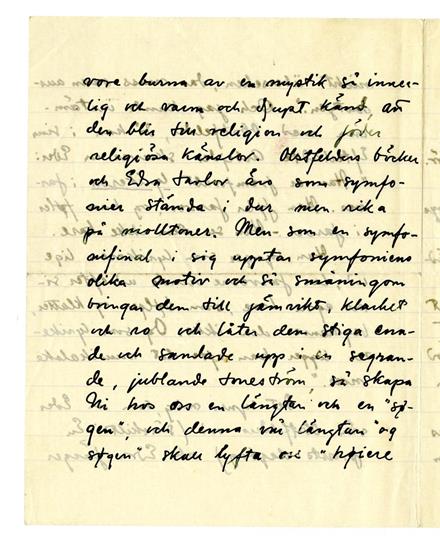 vore burna av en mystik så inner-
lig och varm och djupt känd, att
den blir till religion och föder
religiösa känslor. Obstfelders böcker
och Edra tavlor äro som symfo-
nier stämda i dur men rika
på molltoner. Men som en symfo-
nifinal i sig upptar symfoniens
olika motiv och så småningom
bringar dem till jämvikt, klarhet
och ro och låter dem stiga ena-
de och samlade upp i en segran-
de, jublande toneström, så skapa
Ni hos oss en längtan och en "sø-
gen", och denna vår längtan "og
søgen" skall lyfta oss "høiere